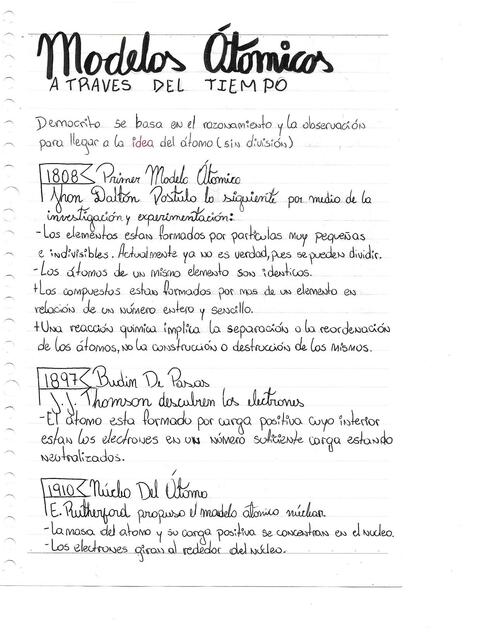 Modelos Átomicos
ATRAVES DEL TIEMPO
Democrito se basa en el razonamiento y la observación
para llegar a la idea del átomo (sin división)
1808 Primer Modelo Átomico
Jhon Daltón Postulo lo siguiente por medio de la
investigación y experimentación:
-Los elementos estan formados por particulas muy pequeñas
e indivisibles. Actualmente ya no es verdad, pues se pueden dividir.
-Los átomos de un mismo elemento son identicos.
+Los compuestos estan formados por mas de un elemento en
relación de un número entero y sencillo.
+Una reacción quimica implica la separación o la reordenación
de los átomos, no la construcción o destrucción de los mismos.
1897 Budin De Pasas
J.J. Thomson descubren los electrones
-El átomo esta formado por carga positiva cuyo interior
estan los electrones en un número suficiente carga estando
neutralizados.
1910 Núcleo Del Átomo
E. Rutherford propuso el modelo atomico núclear.
-La masa del atomo y su carga positiva se concentran en el nucleo.
-Los electrones giran al rededor del núcleo.